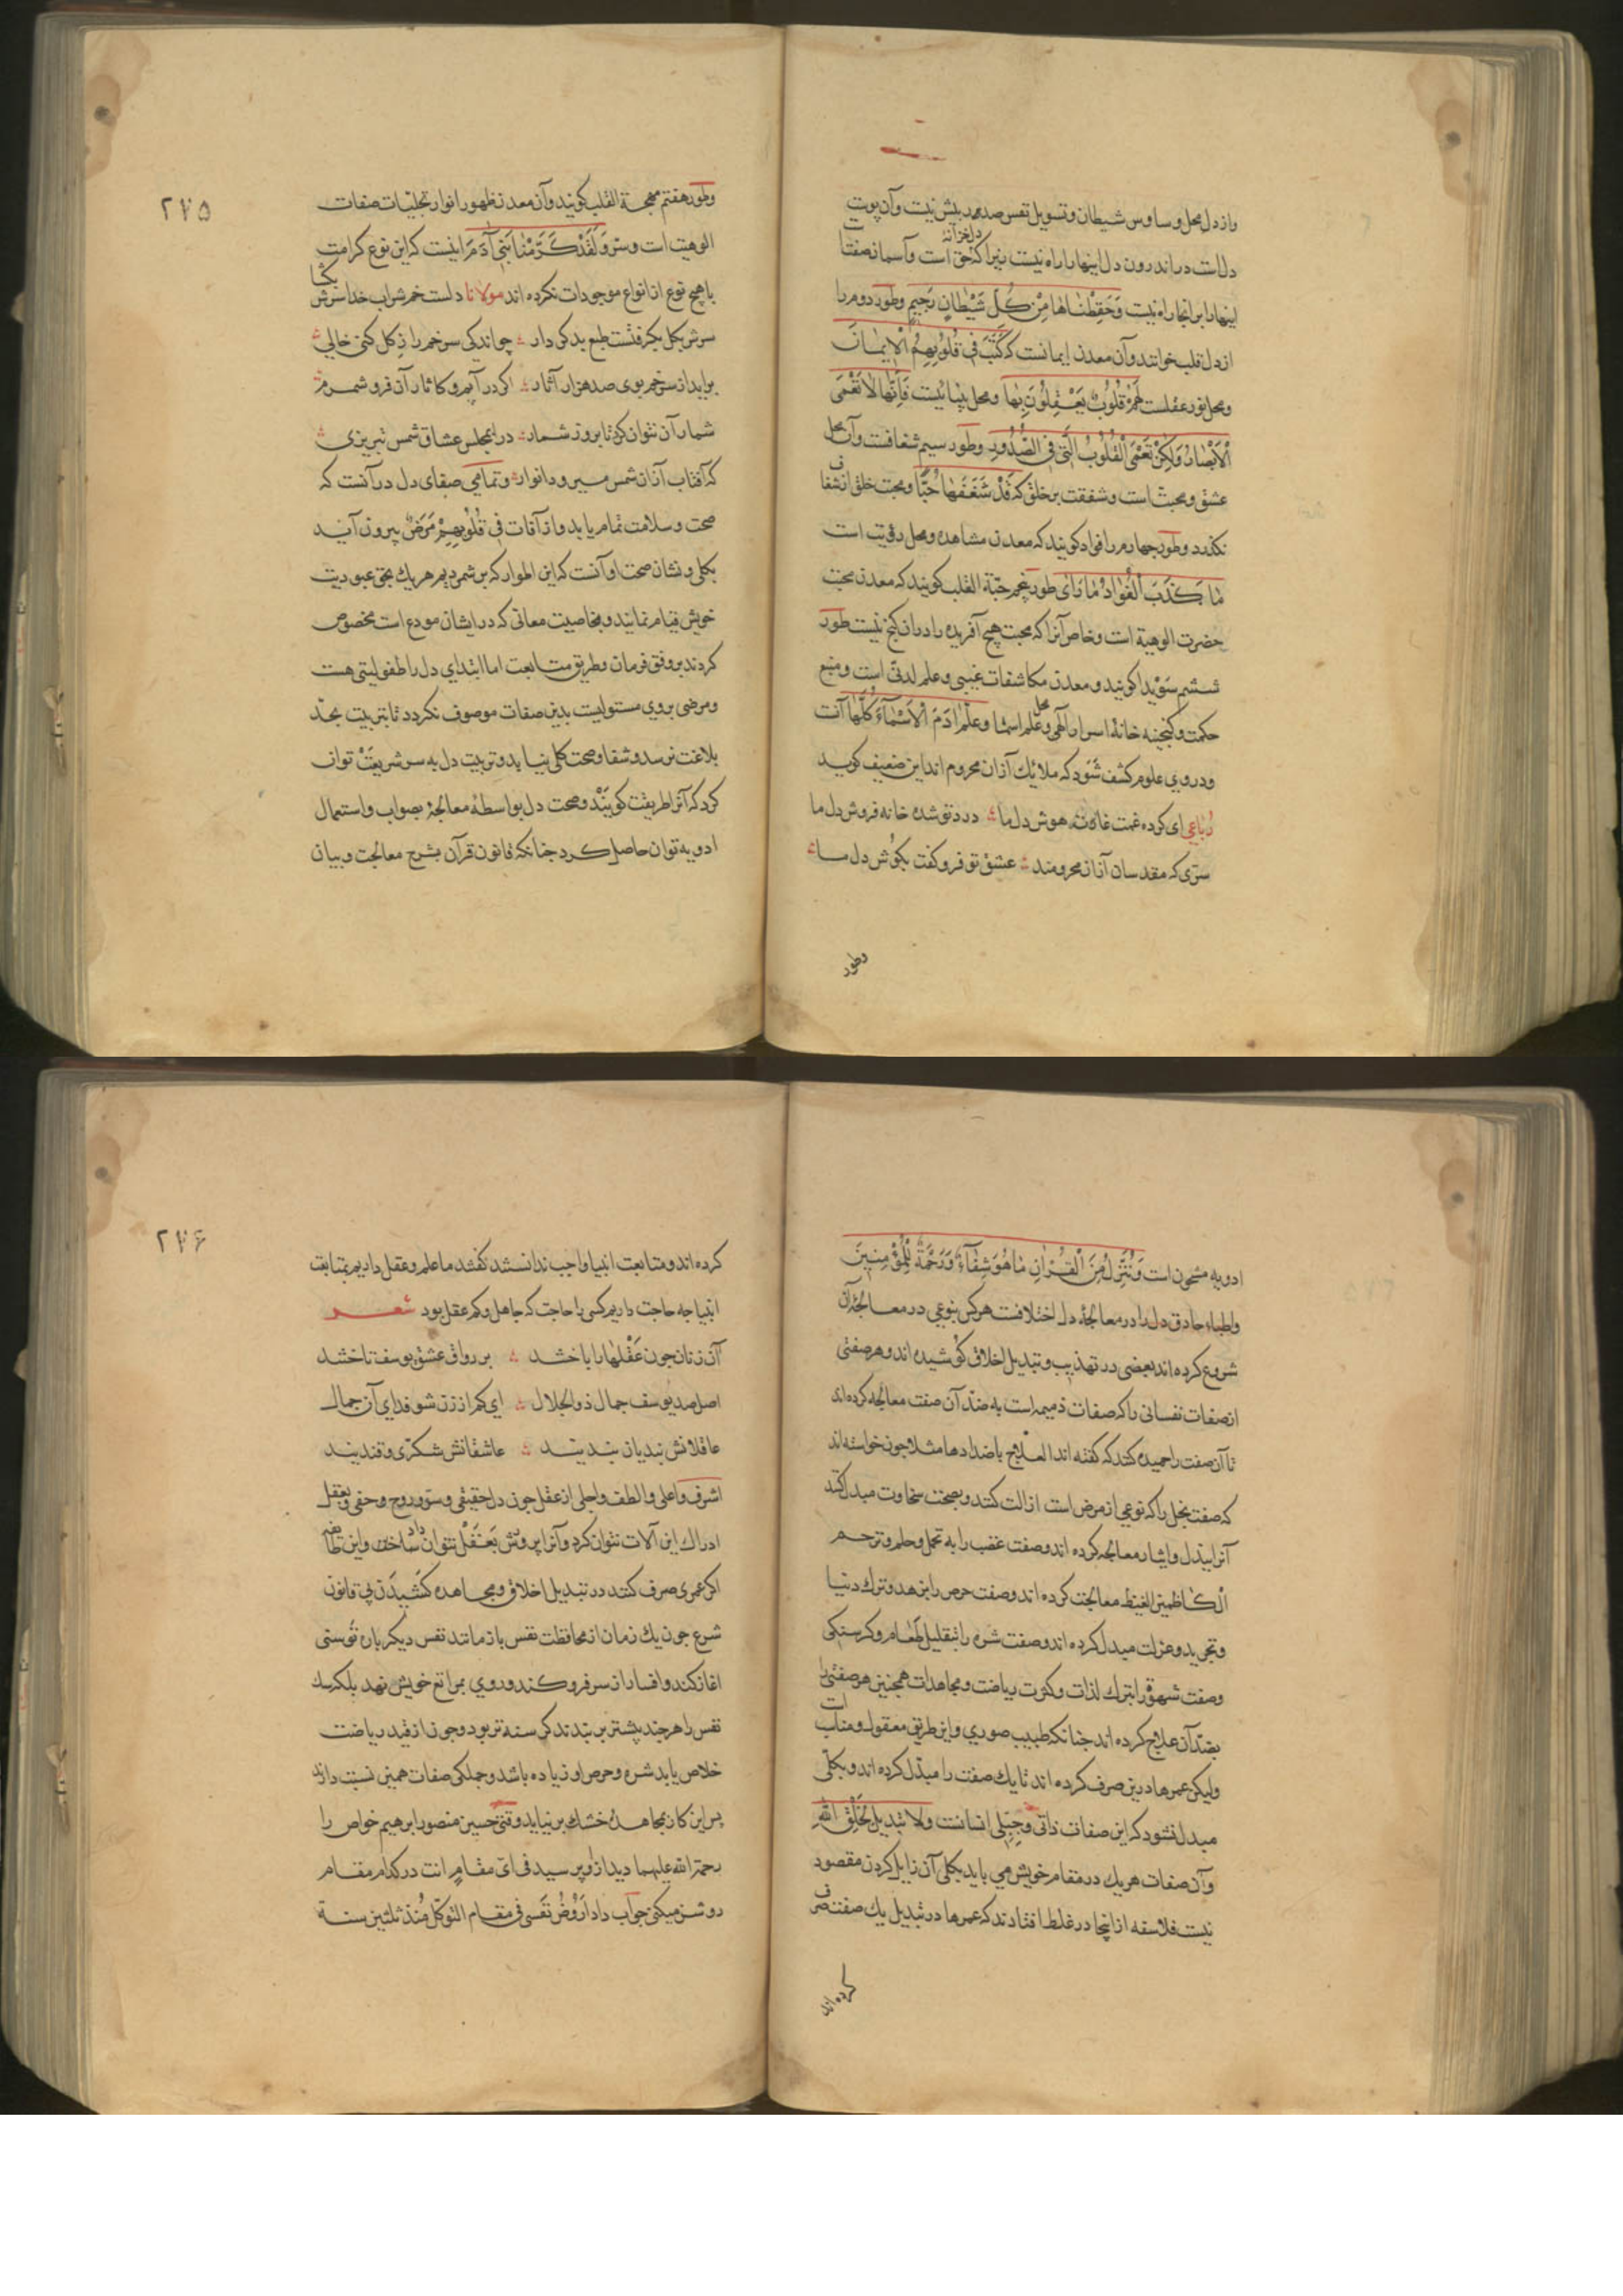 واز دل محل وساوس شیطان وتسویل نفس صدر بیش نیست وآن پوست
دلست در اندرون دل اینهارا راه نیست زیرا که دل خزانهٔ حق است وآسمان صفت
اینهارا بر انجا راه نیست وَحَفِظْنَاهَا مِنْ كُلِّ شَيْطَانٍ رَجِيمٍ وطور دوم را
از دل قلب خوانند وآن معدن ایمانست که كَتَبَ فِي قُلُوبِهِمُ الْإِيمَانَ
ومحل نور عقلست لَهُمْ قُلُوبٌ يَعْقِلُونَ بِهَا ومحل بینائیست فَإِنَّهَا لَا تَعْمَى
الْأَبْصَارُ وَلَكِنْ تَعْمَى الْقُلُوبُ الَّتِي فِي الصُّدُورِ وطور سیم شغافست وآن محل
عشق ومحبت است وشفقت بر خلق که قَدْ شَغَفَهَا حُبًّا ومحبت خلق از شغاف
نکذرد وطور جهارم را فواد کویند که معدن مشاهده ومحل رؤیت است
مَا كَذَبَ الْفُوَادُ مَا رَأَى طور پنجم حبّة القلب کویند که معدن محبت
حضرت الوهیة است وخاص آنرا که محبت هیچ آفریده را در ان کنج نیست طور
ششم سُوَیْدا کویند ومعدن مکاشفات غیبی وعلم لدنّی است ومنبع
حکمت وکنجینه خانهٔ اسرار الٓهی ومحل علم اسما وَعَلَّمَ آدَمَ الْأَسْمَاءَ كُلَّهَا آنست
ودر وی علوم کشف شود که ملائک از ان محروم اند این ضعیف کوید
رباعی ای کرده غمت غارت هوش دل ما درد تو شده خانه فروش دل ما
سرّی که مقدسان از ان محرومند عشق تو فرو کفت بکوش دل ما
وطور
۲۷۵
وطور هفتم مهجة القلب کویند وآن معدن ظهور انوار تجلیّات صفات
الوهیت است وسرّ وَلَقَدْ كَرَّمْنَا بَنِي آدَمَ اینست که این نوع کرامت
با هیچ نوع از انواع موجودات نکرده اند مولانا دلست خم شراب خدا سرش بکشا
سرش بکل بکرفتست طبع بد کردار چو اندکی سر خم را ز کل کنی خالی
براید از سر خم بوی صد هزار آثار اکر در آیم وکاثار آن فرو شمرم
شمار آن نتوان کرد تا بروز شمار درا بمجلس عشاق شمس تبریزی
که آفتاب از ان شمس میبرد انوار وتمامی صفای دل در آنست که
صحت وسلامت تمام یابد واز آفات فِي قُلُوبِهِمْ مَرَضٌ بیرون آید
بکلی ونشان صحت او آنست که این اطوار که بر شمردیم هر یک بحق عبودیت
خویش قیام نمایند وبخاصیت معانی که در ایشان مودع است مخصوص
کردند بر وفق فرمان وطریق متابعت اما ابتدای دل را طفولیتی هست
ومرضی بروی مستولیست بدین صفات موصوف نکردد تا بتربیت بحدّ
بلاغت نرسد وشفا وصحت کلی نیابد وتربیت دل به سر شریعت توان
کرد که آنرا طریقت کویند وصحت دل بواسطهٔ معالجهٔ بصواب واستعمال
ادویه توان حاصل کرد جنانکه قانون قرآن بشرح معالجت وبیان
ادویه مشحون است وَنُنَزِّلُ مِنَ الْقُرْآنِ مَا هُوَ شِفَاءٌ وَرَحْمَةٌ لِلْمُؤْمِنِينَ
واطباء حاذق دل را در معالجهٔ دل اختلافست هر کس بنوعی در معالجهٔ آن
شروع کرده اند بعضی در تهذیب وتبدیل اخلاق کوشیده اند وهر صفتی
از صفات نفسانی را که صفات ذمیمه است به ضدّ آن صفت معالجه کرده اند
تا آن صفت را حمیده کنند که کفته اند العلاج باضدادها مثلا جون خواسته اند
که صفت بخل را که نوعی از مرض است ازالت کنند وبصحت سخاوت مبدل کنند
آنرا ببذل وایثار معالجه کرده اند وصفت غضب را به تحمل وحلم وترحم
الکاظمین الغیظ معالجت کرده اند وصفت حرص را بزهد وترک دنیا
وتجرید وعزلت مبدل کرده اند وصفت شره را بتقلیل طعام وکرسنکی
وصفت شهوة را بترک لذات وکثرت ریاضت ومجاهدات همچنین هر صفتی را
بضدّ آن علاج کرده اند جنانکه طبیب صوری واین طریق معقول ومناسب است
ولیکن عمرها درین صرف کرده اند تا یک صفت را مبدّل کرده اند وبکلّی
مبدل نشود که این صفات ذاتی وجبلّی انسانست وَلَا تَبْدِيلَ لِخَلْقِ اللهِ
وآن صفات هر یک در مقام خویش می باید بکلی آن زایل کردن مقصود
نیست فلاسفه از اینجا در غلط افتادند که عمرها در تبدیل یک صفت صرف
کرده اند
۲۷۶
کرده اند ومتابعت انبیا واجب ندانستند کفتند ما علم وعقل داریم بمتابعت
انبیا جه حاجت داریم کسی را حاجت که جاهل وکم عقل بود شعر
آن زنان جون عقلها را باختند بر رواق عشق یوسف تاختند
اصل صد یوسف جمال ذو الجلال ای کم از زن شو فدای آن جمال
عاقلانش بندیان بندیند عاشقانش شکرّی وقندیند
اشرف واعلی والطف واجلی از عقل جون دل حقیقی وسرّ وروح وخفی وبعقل
ادراک این آلات نتوان کرد وآنرا پرورش بعقل نتوان داد
اکر عمری صرف کنند در تبدیل اخلاق ومجاهده کشیدن بی قانون
شرع جون یک زمان از محافظت نفس باز مانند نفس دیکر باره توسنی
اغاز کند وافسار از سر فرو کند وروی بمراتع خویش نهد بلک سک
نفس را هر جند پیشتر بر بندند کرسنه تر بود وجون از قید ریاضت
خلاص یابد شره وحرص او زیاده باشد وجملکی صفات همین نسبت دارند
پس این کار بمجاهدهٔ خشک بر نیاید وقتی حسین منصور ابرهیم خواص را
رحمة الله علیهما دید ازو پرسید فی ایّ مقامٍ انت در کدام مقام
روش میکنی جواب داد اَرُوضُ نَفْسی فی مقام التوکّل مُنْذُ ثلثین سنة